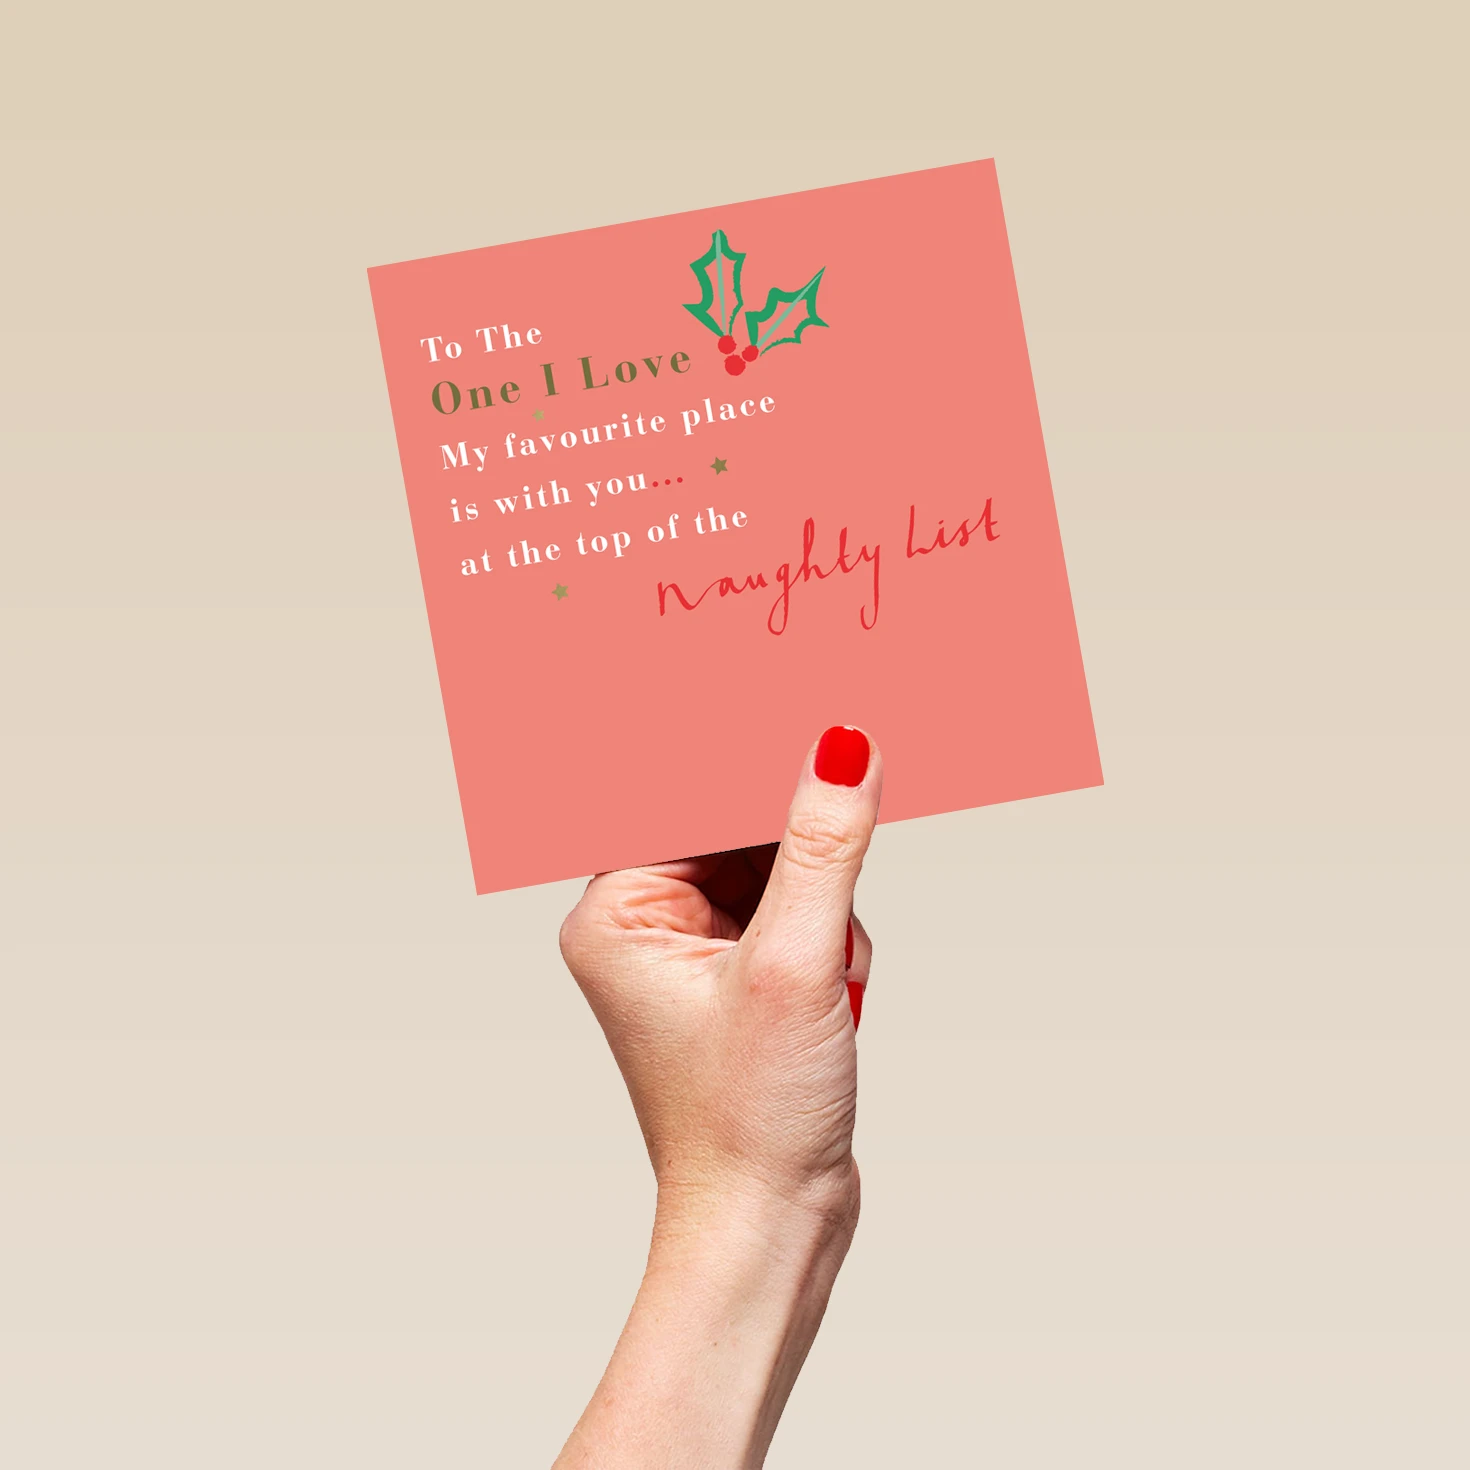 To The
One I Love
My favourite place
is with you...
at the top of the
Naughty List